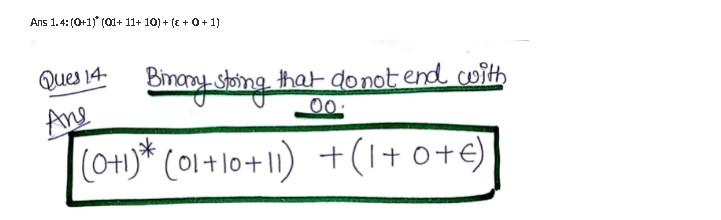 Ans 1.4: (0+1)* (01+ 11+ 10) + (ε + 0 + 1)
Ques 14 Binary string that do not end with
00:
Ans
(0+1)* (01+10+11) +(1+0+ϵ)